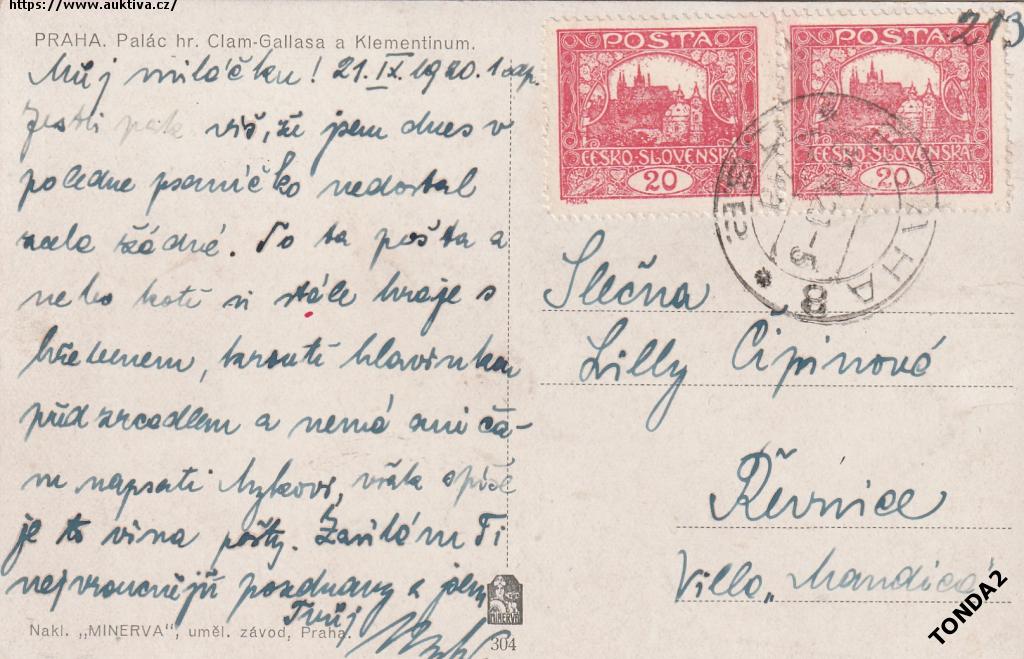 https://www.auktiva.cz/
PRAHA. Palác hr. Clam-Gallasa a Klementinum.
Můj miláčku! 21. IX. 1920. 1 odp.
Jestli pak víš, že jsem dnes v
poledne psaníčko nedostal
zcela žádné. To ta pošta a
nebo kotě si stále hraje s
hřebenem, kroutí hlavinkou
před zrcadlem a nemá ani ča-
su napsati, však spíše
je to vina pošty. Zasílám Ti
nejvroucnější pozdravy a jsem
Tvůj
Nakl. „MINERVA", uměl. závod, Praha.
MINERVA
304
213
POSTA
ČESKO-SLOVENSKÁ
20
MUCHA
POSTA
ČESKO-SLOVENSKÁ
20
MUCHA
PRAHA
8
Slečna
Lilly Čipinová
Řevnice
Villa „Mandica"
TONDA2